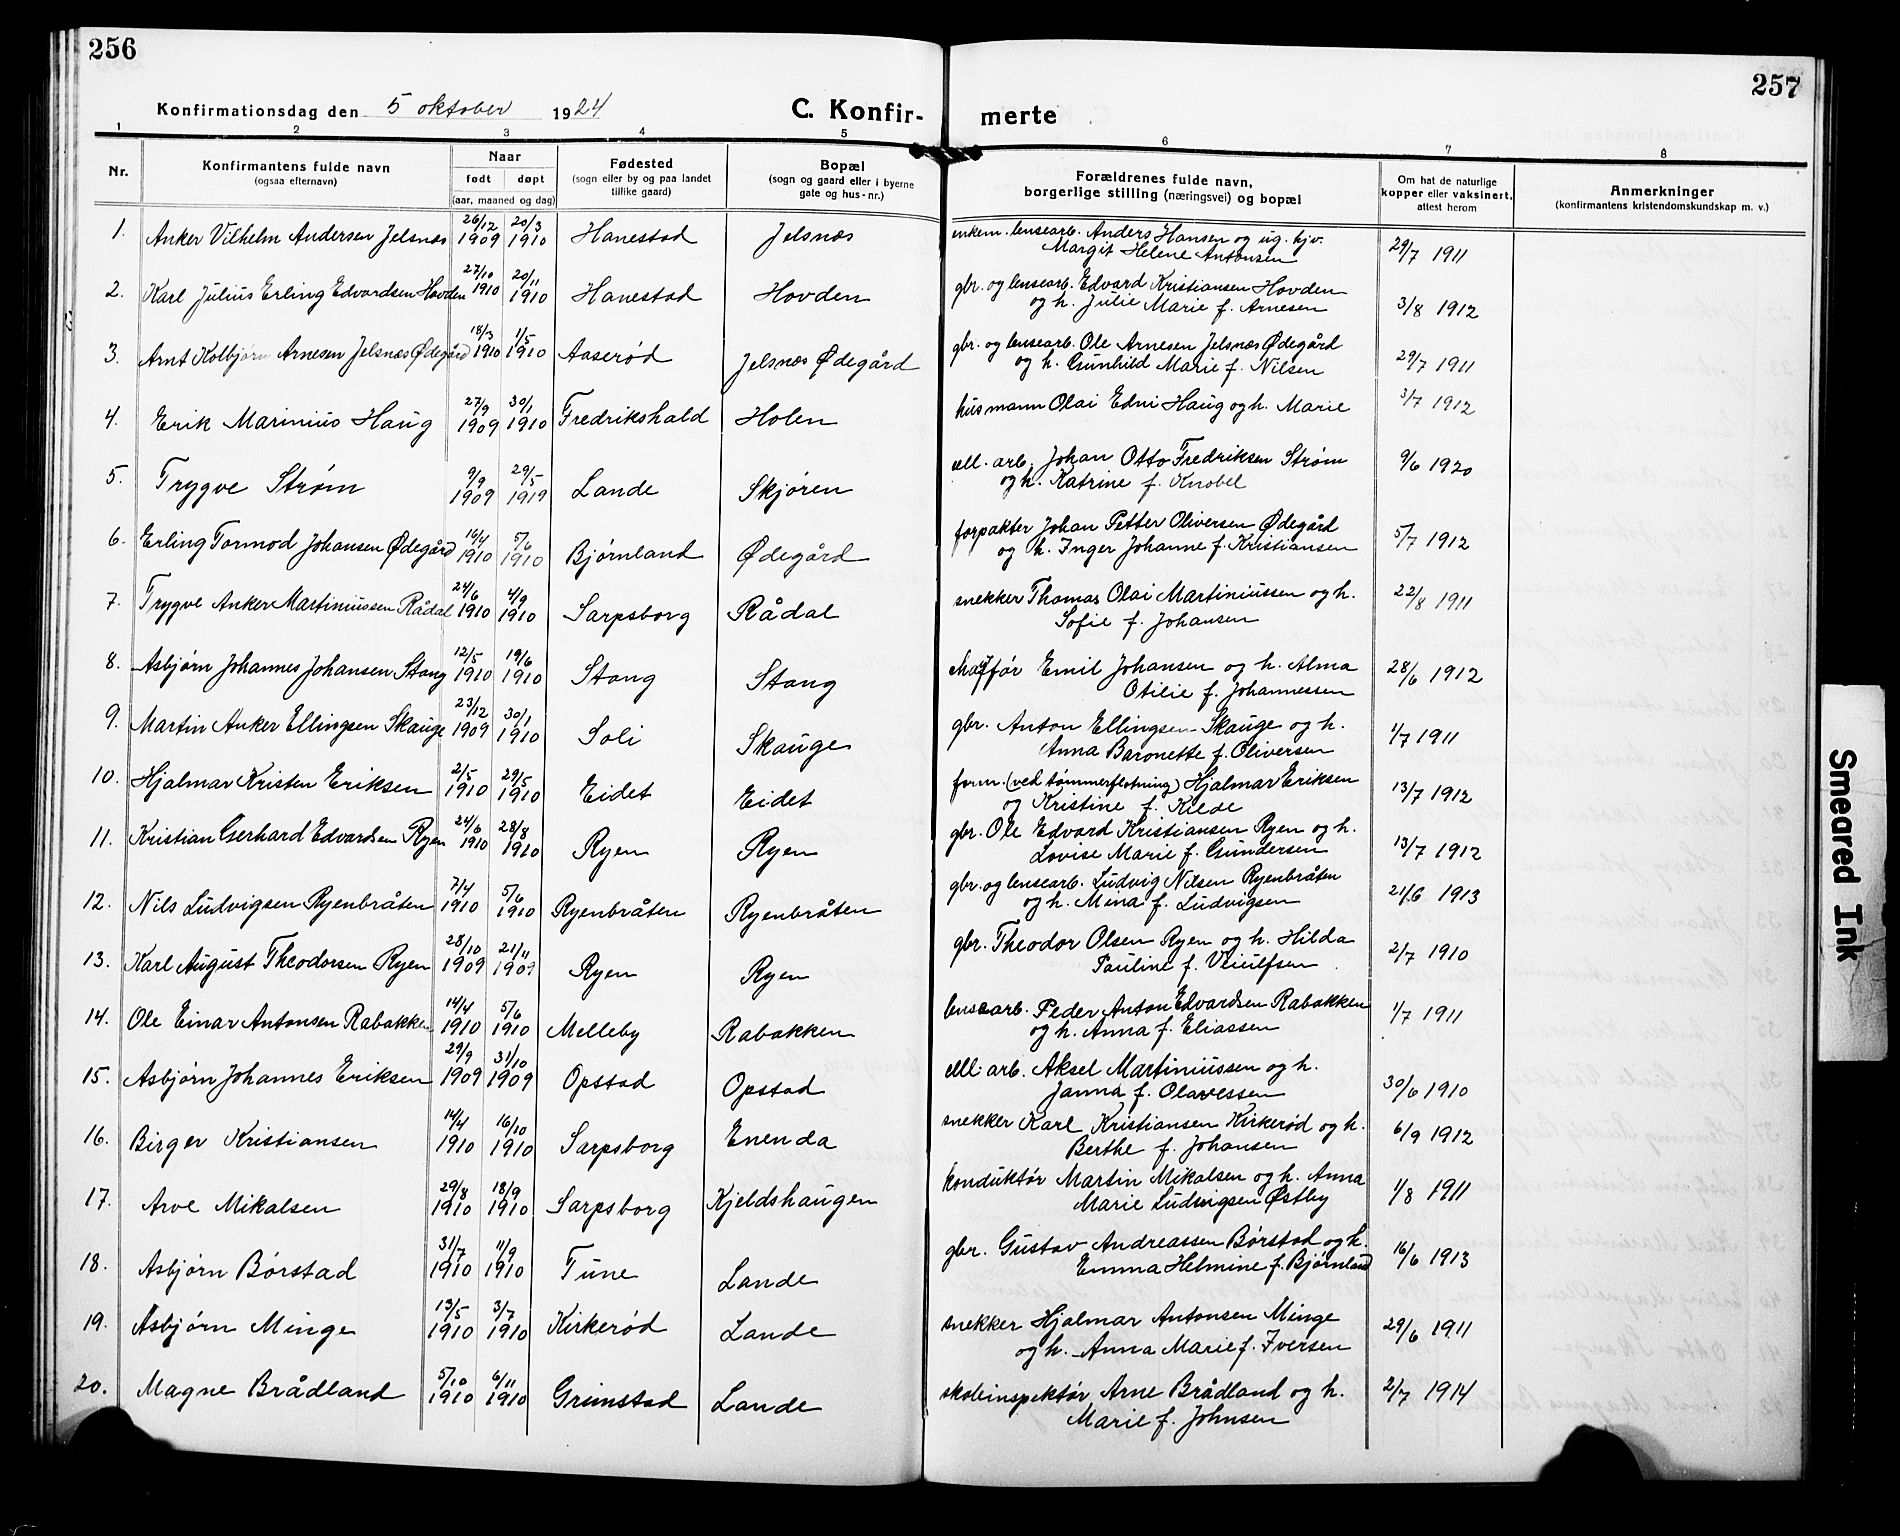 256
257
Konfirmationsdag den 5 oktober 1924
C. Konfir- merte
1 2 3 4 5 6 7 8
Nr.
Konfirmantens fulde navn
(ogsaa efternavn)
Naar
født døpt
(aar, maaned og dag)
Fødested
(sogn eller by og paa landet
tillike gaard)
Bopæl
(sogn og gaard eller i byerne
gate og hus-nr.)
Forældrenes fulde navn,
borgerlige stilling (næringsvei) og bopæl
Om hat de naturlige
kopper eller vaksinert,
attest herom
Anmerkninger
(konfirmantens kristendomskundskap m. v.)
1. Anker Vilhelm Andersen Jelsnæs 26/12 1909 20/3 1910 Hanestad Jelsnæs enkem. lensearb. Anders Hansen og ug. hjv. 29/7 1911
Margit Helene Antonsen
2. Karl Julius Erling Edvardsen Hovden 27/10 1910 20/11 1910 Hanestad Hovden gbr. og lensearb. Edvard Kristiansen Hovden 3/8 1912
og h. Julie Marie f. Arnesen
3. Arnt Kolbjørn Arnesen Jelsnæs Ødegård 18/3 1910 1/5 1910 Aaserød Jelsnæs Ødegård gbr. og lensearb. Ole Arnesen Jelsnæs Ødegård 29/7 1911
og h. Gunhild Marie f. Nilsen
4. Erik Marinius Haug 27/9 1909 30/1 1910 Fredrikshald Holen husmann Olai Edni Haug og h. Marie 3/7 1912
5. Trygve Strøm 9/9 1909 29/5 1919 Lande Skjøren cell. arb. Johan Otto Fredriksen Strøm 9/6 1920
og h. Katrine f. Knobel
6. Erling Tormod Johansen Ødegård 16/4 1910 5/6 1910 Bjørnland Ødegård forpakter Johan Petter Oliversen Ødegård 5/7 1912
og h. Inger Johanne f. Kristiansen
7. Trygve Anker Martiniussen Rådal 24/6 1910 4/9 1910 Sarpsborg Rådal snekker Thomas Olai Martiniussen og h. 22/8 1911
Sofie f. Johansen
8. Asbjørn Johannes Johansen Stang 12/5 1910 19/6 1910 Stang Stang chaffør Emil Johansen og h. Alma 28/6 1912
Otilie f. Johannessen
9. Martin Anker Ellingsen Skauge 23/12 1909 30/1 1910 Soli Skauge gbr. Anton Ellingsen Skauge og h. 1/7 1911
Anna Baronette f. Oliversen
10. Hjalmar Kristen Eriksen 2/5 1910 29/5 1910 Eidet Eidet form. (ved tømmerfløtning) Hjalmar Eriksen 13/7 1912
og Kristine f. Kilde
11. Kristian Gerhard Edvardsen Ryen 24/6 1910 28/8 1910 Ryen Ryen gbr. Ole Edvard Kristiansen Ryen og h. 13/7 1912
Lovise Marie f. Gundersen
12. Nils Ludvigsen Ryenbråten 7/4 1910 5/6 1910 Ryenbråten Ryenbråten gbr. og lensearb. Ludvig Nilsen Ryenbråten 21/6 1913
og h. Mina f. Ludvigsen
13. Karl August Theodorsen Ryen 28/10 1909 21/11 1909 Ryen Ryen gbr. Theodor Olsen Ryen og h. Hilda 2/7 1910
Pauline f.
14. Ole Einar Antonsen Rabakken 14/4 1910 5/6 1910 Melleby Rabakken lensearb. Peder Anton Edvardsen Rabakken 1/7 1911
og h. Anna f. Eliassen
15. Asbjørn Johannes Eriksen 29/9 1909 31/10 1909 Opstad Opstad cell. arb. Aksel Martiniussen og h. 30/6 1910
Janna f. Olavessen
16. Birger Kristiansen 14/4 1910 16/10 1910 Sarpsborg Enenda snekker Karl Kristiansen Kirkerød og h. 6/9 1912
Berthe f. Johansen
17. Arve Mikalsen 29/8 1910 18/9 1910 Sarpsborg Kjeldshaugen konduktør Martin Mikalsen og h. Anna 1/8 1911
Marie Ludvigsen Østby
18. Asbjørn Børstad 31/7 1910 11/9 1910 Tune Lande gbr. Gustav Andreassen Børstad og h. 16/6 1913
Emma Helmine f. Bjørnland
19. Asbjørn Minge 13/5 1910 3/7 1910 Kirkerød Lande snekker Hjalmar Antonsen Minge 29/6 1911
og h. Anna Marie f. Iversen
20. Magne Brådland 5/10 1910 6/11 1910 Grimstad Lande skoleinspektør Arne Brådland og h. 2/7 1914
Marie f. Johnsen
Smeared Ink